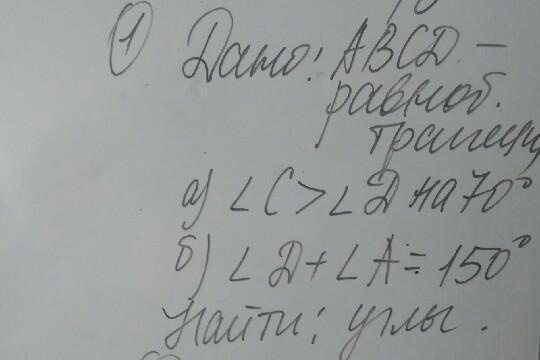 1 Дано: ABCD –
равноб.
трапеция
а) ∠C > ∠D на 70°
б) ∠D + ∠A = 150°
Найти: углы.